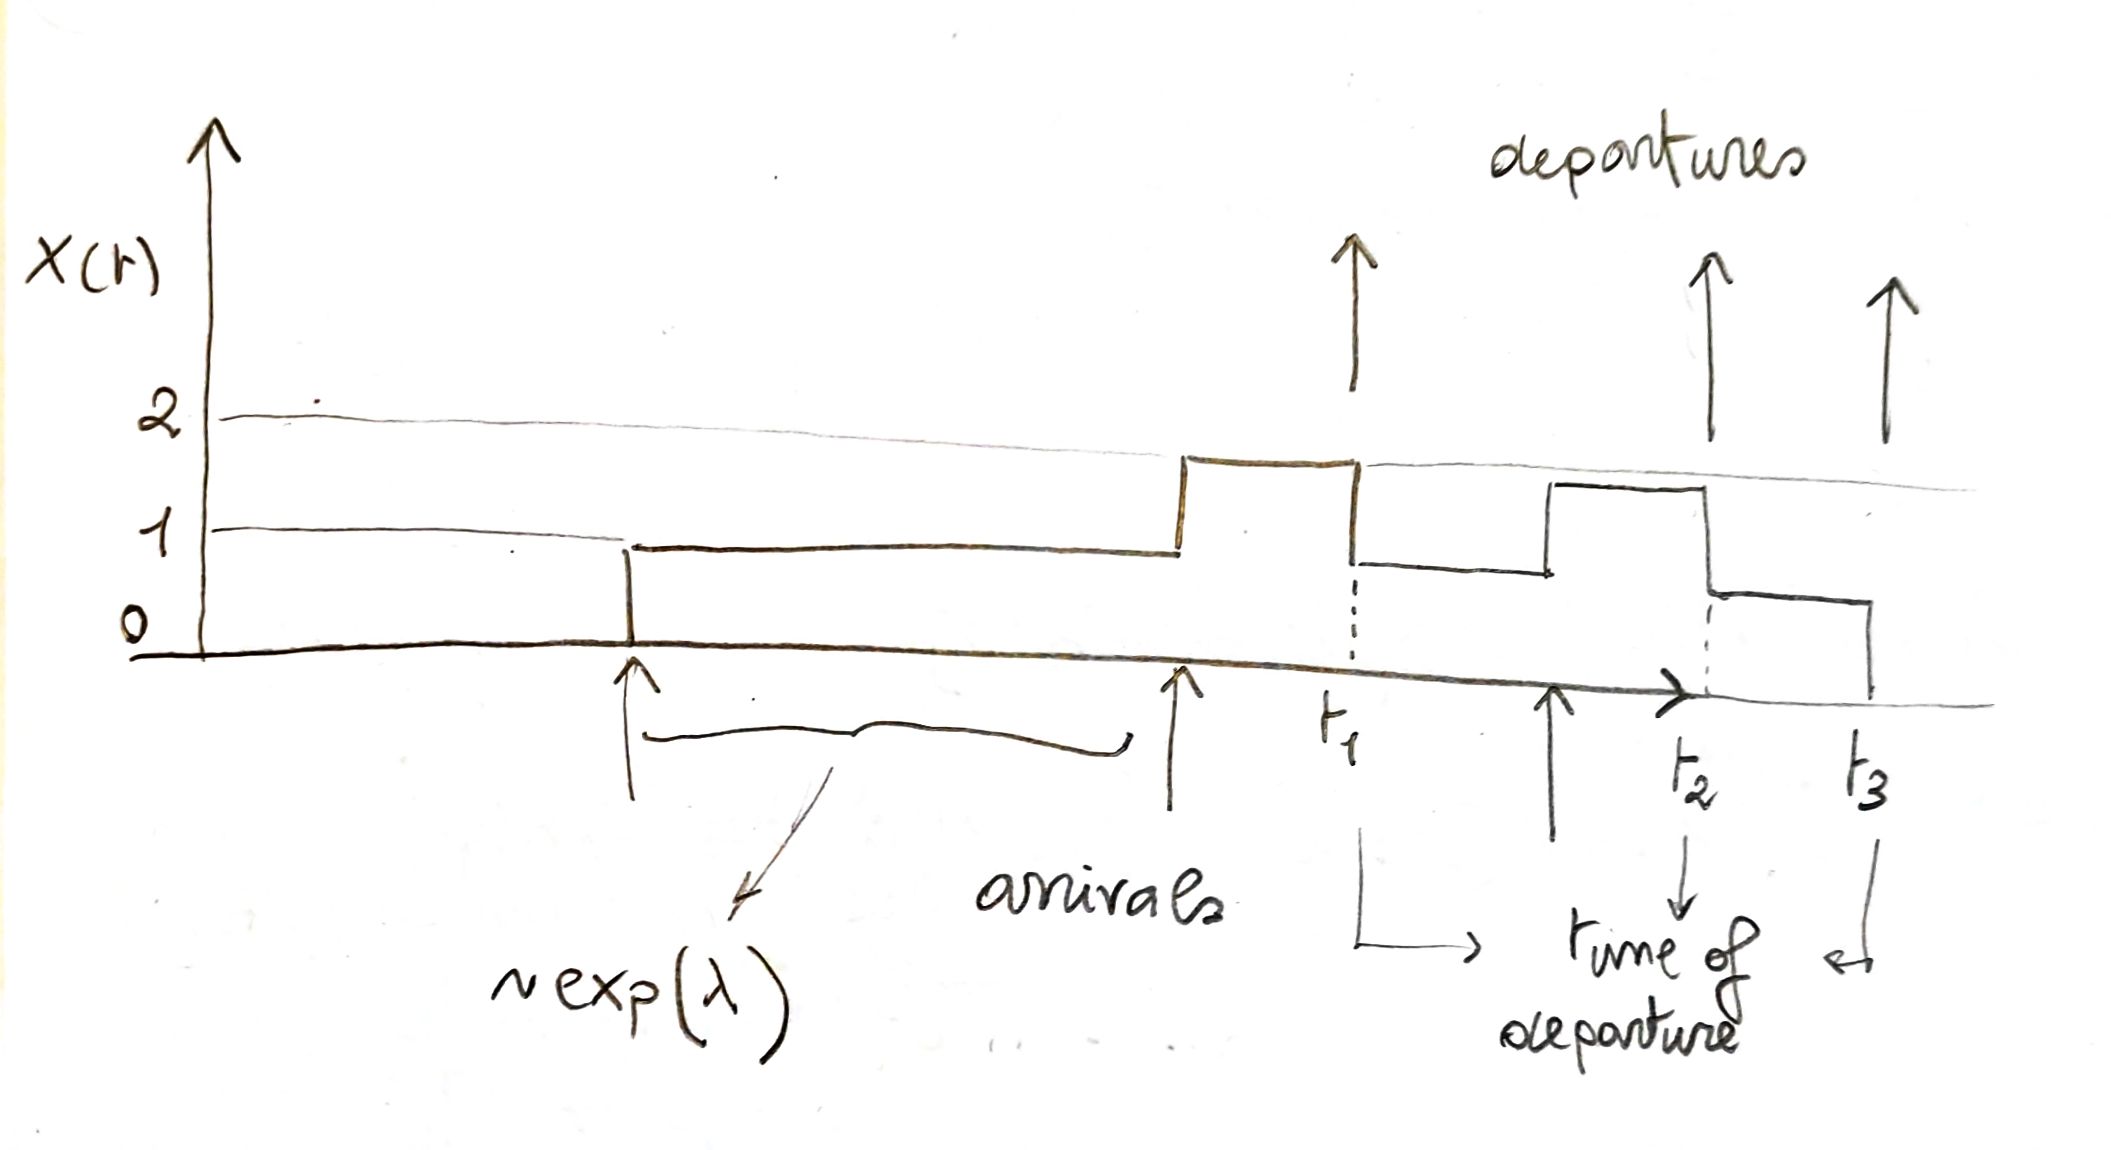 departures
X(t)
2
1
0
t1
t2
t3
arrivals
time of
departure
~exp(λ)